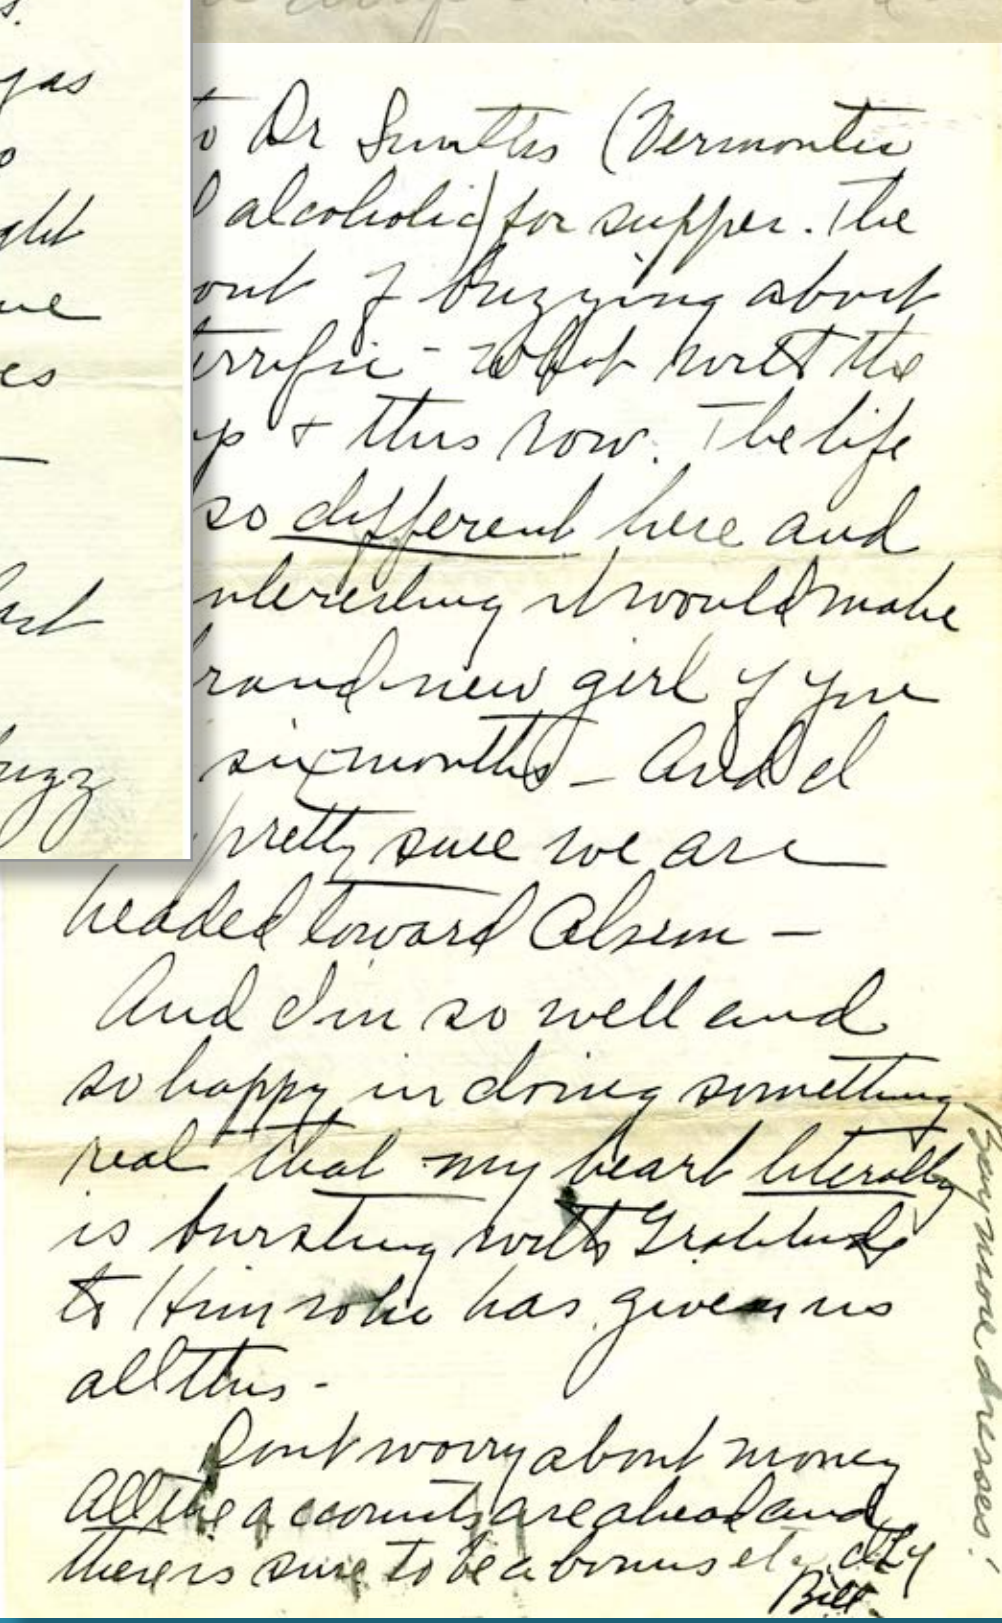 gas
ght
es
buzz
to Dr Smiths (Vermonter
alcoholic) for supper. The
out of buzzing about
errific - what with the
p + this row. The life
so different here and
nteresting it would make
rand new girl of you
six months - And I
pretty sure we are
headed toward
And I'm so well and
so happy in doing something
real that my heart literally
is bursting with Gratitude
to Him who has given us
all this -
Dont worry about money
All the accounts are ahead and
there is sure to be a bonus etc.
Bill
Buy more dresses!